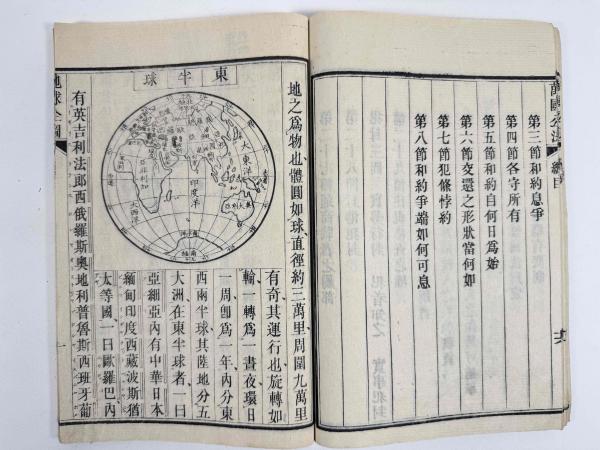 萬國公法
總目
第三節和約息爭
第四節各守所有
第五節和約自何日爲始
第六節交還之形狀當何如
第七節犯條悖約
第八節和約爭端如何可息
地之爲物也、體圓如球、直徑約三萬里、周圍九萬里
東半球
大東洋
印度洋
亞非利加
大西洋
有奇、其運行也、旋轉如
輪、一轉爲一晝夜、環日
一周、卽爲一年、內分東
西兩半球、其陸地分五
大洲、在東半球者一曰
亞細亞、內有中華日本
緬甸印度西藏波斯猶
太等國、一曰歐羅巴、內
有英吉利法郎西俄羅斯奧地利普魯斯西班牙葡
地球全圖
一